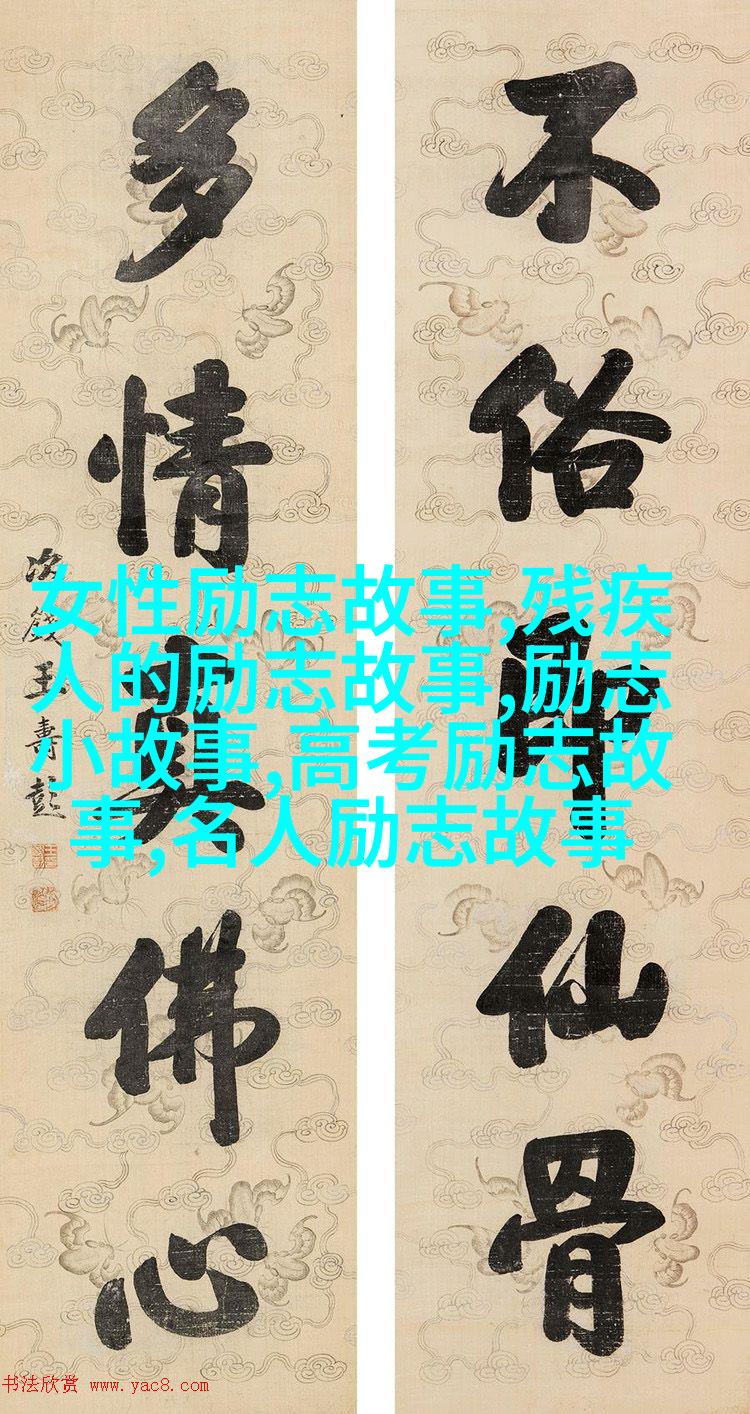 不俗即仙骨
多情佛心
次籛王壽彭
女性励志故事,残疾
人的励志故事,励志
小故事,高考励志故
事,名人励志故事
书法欣赏 www.yac8.com